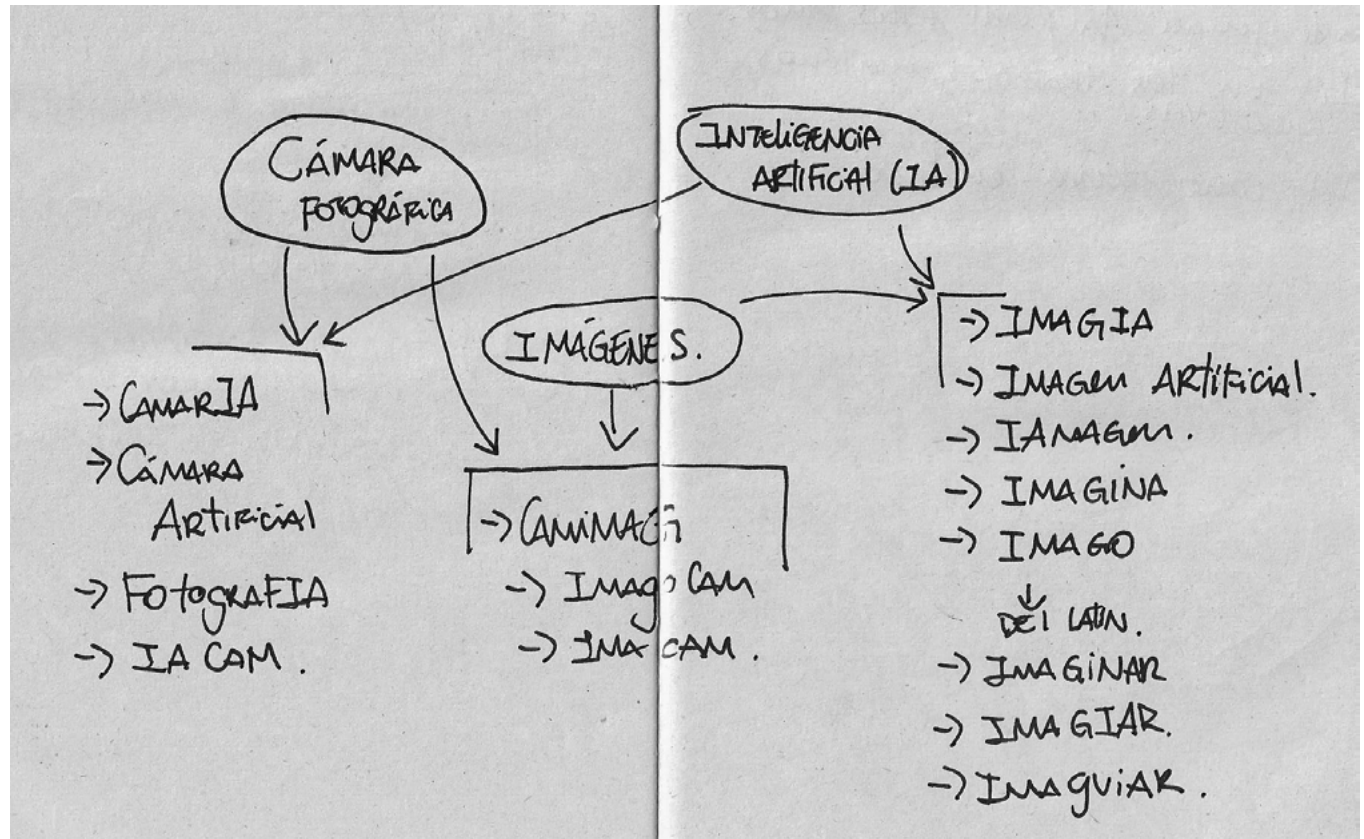 CÁMARA
FOTOGRÁFICA
INTELIGENCIA
ARTIFICIAL (IA)
IMÁGENES.
→ CAMARIA
→ CÁMARA
ARTIFICIAL
→ FOTOGRAFIA
→ IA CAM.
→ CAMIMAG
→ IMAGO CAM
→ IMA CAM.
→ IMAGIA
→ IMAGEN ARTIFICIAL.
→ IAMAGEN.
→ IMAGINA
→ IMAGO
↓
DEL LATIN.
→ IMAGINAR
→ IMAGIAR.
→ IMAGUIAR.